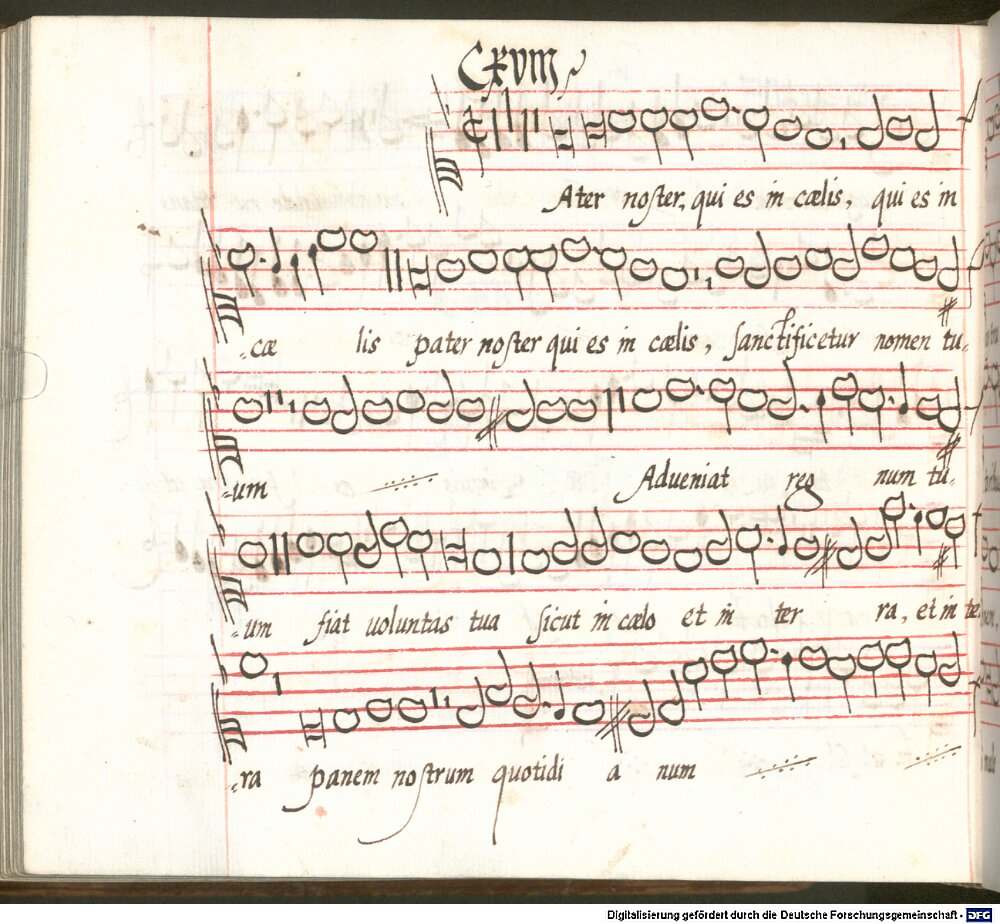 CXVIII
Ater noster, qui es in cælis, qui es in
cæ lis pater noster qui es in cælis, sanctificetur nomen tu,
um Adueniat reg num tu,
um fiat uoluntas tua sicut in cælo et in ter ra, et in te
ra panem nostrum quotidi a num
Digitalisierung gefördert durch die Deutsche Forschungsgemeinschaft - DFG